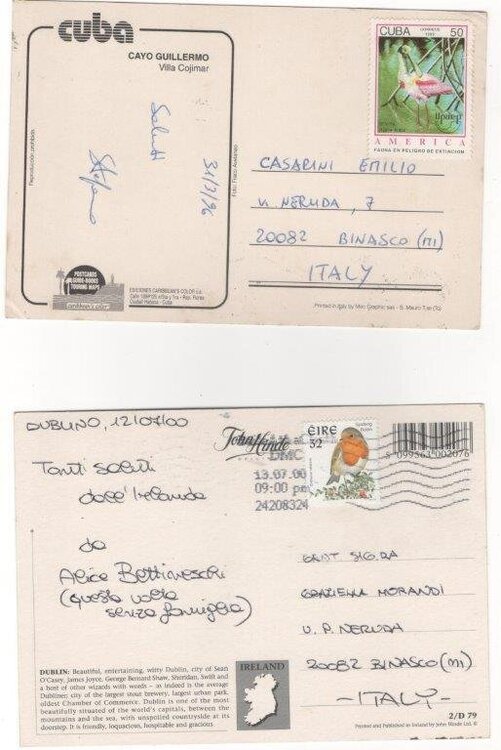 cuba
CAYO GUILLERMO
Villa Cojimar
Saluti
Stefano
31/3/96
Reproducción prohibida
CUBA CORREOS 50
Upaep
AMERICA
FAUNA EN PELIGRO DE EXTINCION
CASARINI EMILIO
V. NERUDA, 7
20082 BINASCO (MI)
ITALY
POSTCARDS
GUIDE-BOOKS
TOURING MAPS
caribbean's color
EDICIONES CARIBBEAN'S COLOR
Ciudad Habana - Cuba
Printed in Italy by
DUBLINO, 12/07/00
Tanti saluti
dall'Irlanda
da
Alice Bettineschi
(questa volta
senza famiglia)
John Hinde
DMC
13.07.00
09:00 pm
24208324
ÉIRE
32
5 099363 002076
GENT. SIG.RA
GRAZIELLA MORANDI
V. P. NERUDA
20082 BINASCO (MI)
-ITALY-
DUBLIN: Beautiful, entertaining, witty Dublin, city of Sean
O'Casey, James Joyce, George Bernard Shaw, Sheridan, Swift and
a host of other wizards with words – as indeed is the average
Dubliner; city of the largest stout brewery, largest urban park,
oldest Chamber of Commerce. Dublin is one of the most
beautifully situated of the world's capitals, between the
mountains and the sea, with unspoiled countryside at its
doorstep. It is friendly, loquacious, hospitable and gracious.
IRELAND
2/D 79
Printed and Published in Ireland by John Hinde Ltd.